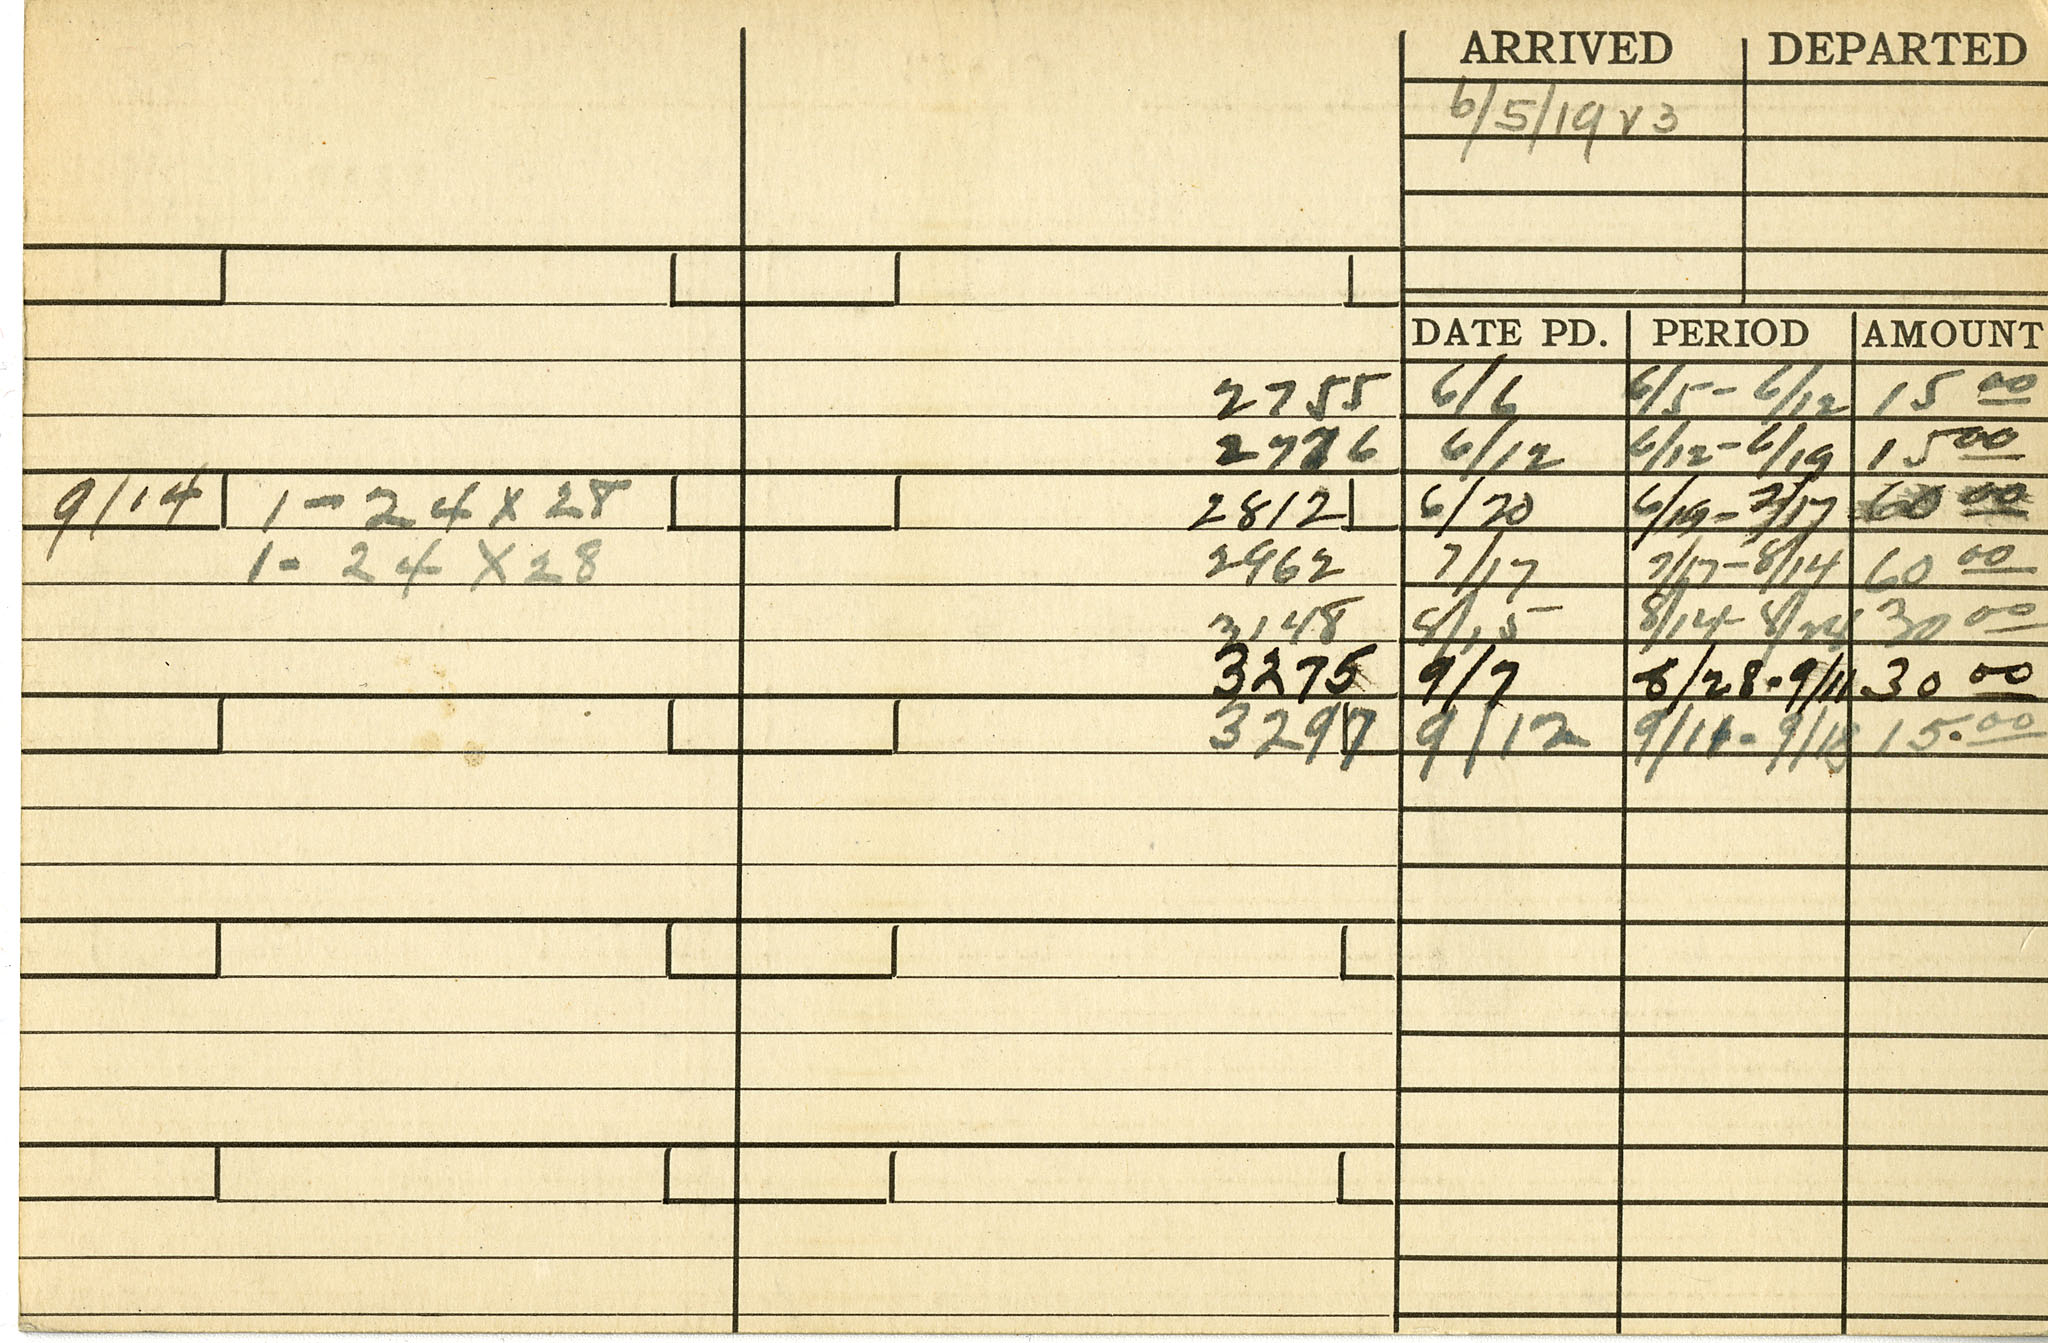 ARRIVED DEPARTED
6/5/19 v3
DATE PD. PERIOD AMOUNT
2755 6/6 6/5 - 6/12 15 00
6/12 6/12 - 6/19 15 00
9/14 1 - 24 x 28 2812 6/20 6/19 - 7/17 60 00
1 - 24 X 28 2962 7/17 7/17 - 8/14 60 00
3148 8/15 8/14 - 30 00
3275 9/7 8/28 - 9/11 30 00
3297 9/12 9/11 - 9/18 15.00